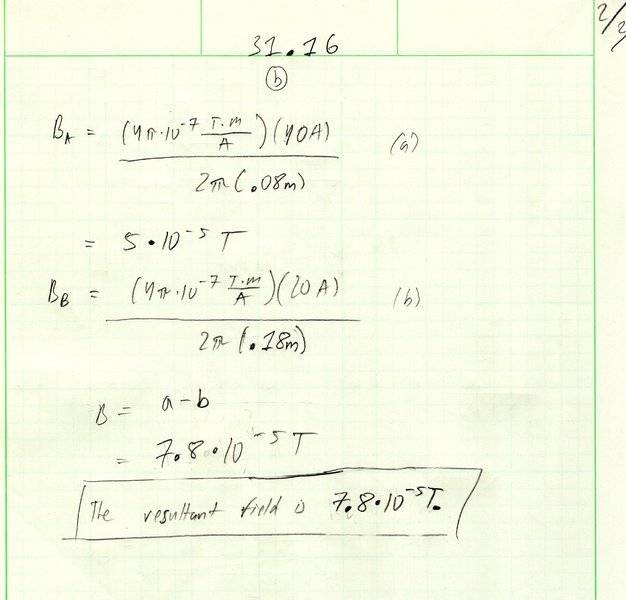 2/2
31.16
(b)
B_A = (4π·10^-7 T·m/A)(40A) / 2π(.08m) (a)
= 5·10^-5 T
B_B = (4π·10^-7 T·m/A)(20A) / 2π(.18m) (b)
B = a-b
= 7.8·10^-5 T
The resultant field is 7.8·10^-5 T.